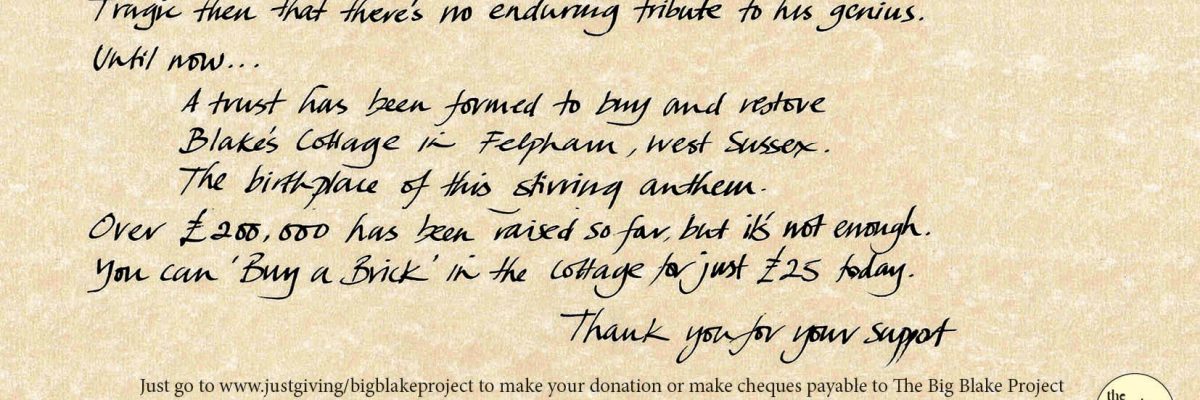 Tragic then that there's no enduring tribute to his genius.
Until now...
A trust has been formed to buy and restore
Blake's Cottage in Felpham, West Sussex.
The birthplace of this stirring anthem.
Over £200,000 has been raised so far, but it's not enough.
You can 'Buy a Brick' in the cottage for just £25 today.
Thank you for your support
Just go to www.justgiving/bigblakeproject to make your donation or make cheques payable to The Big Blake Project
the